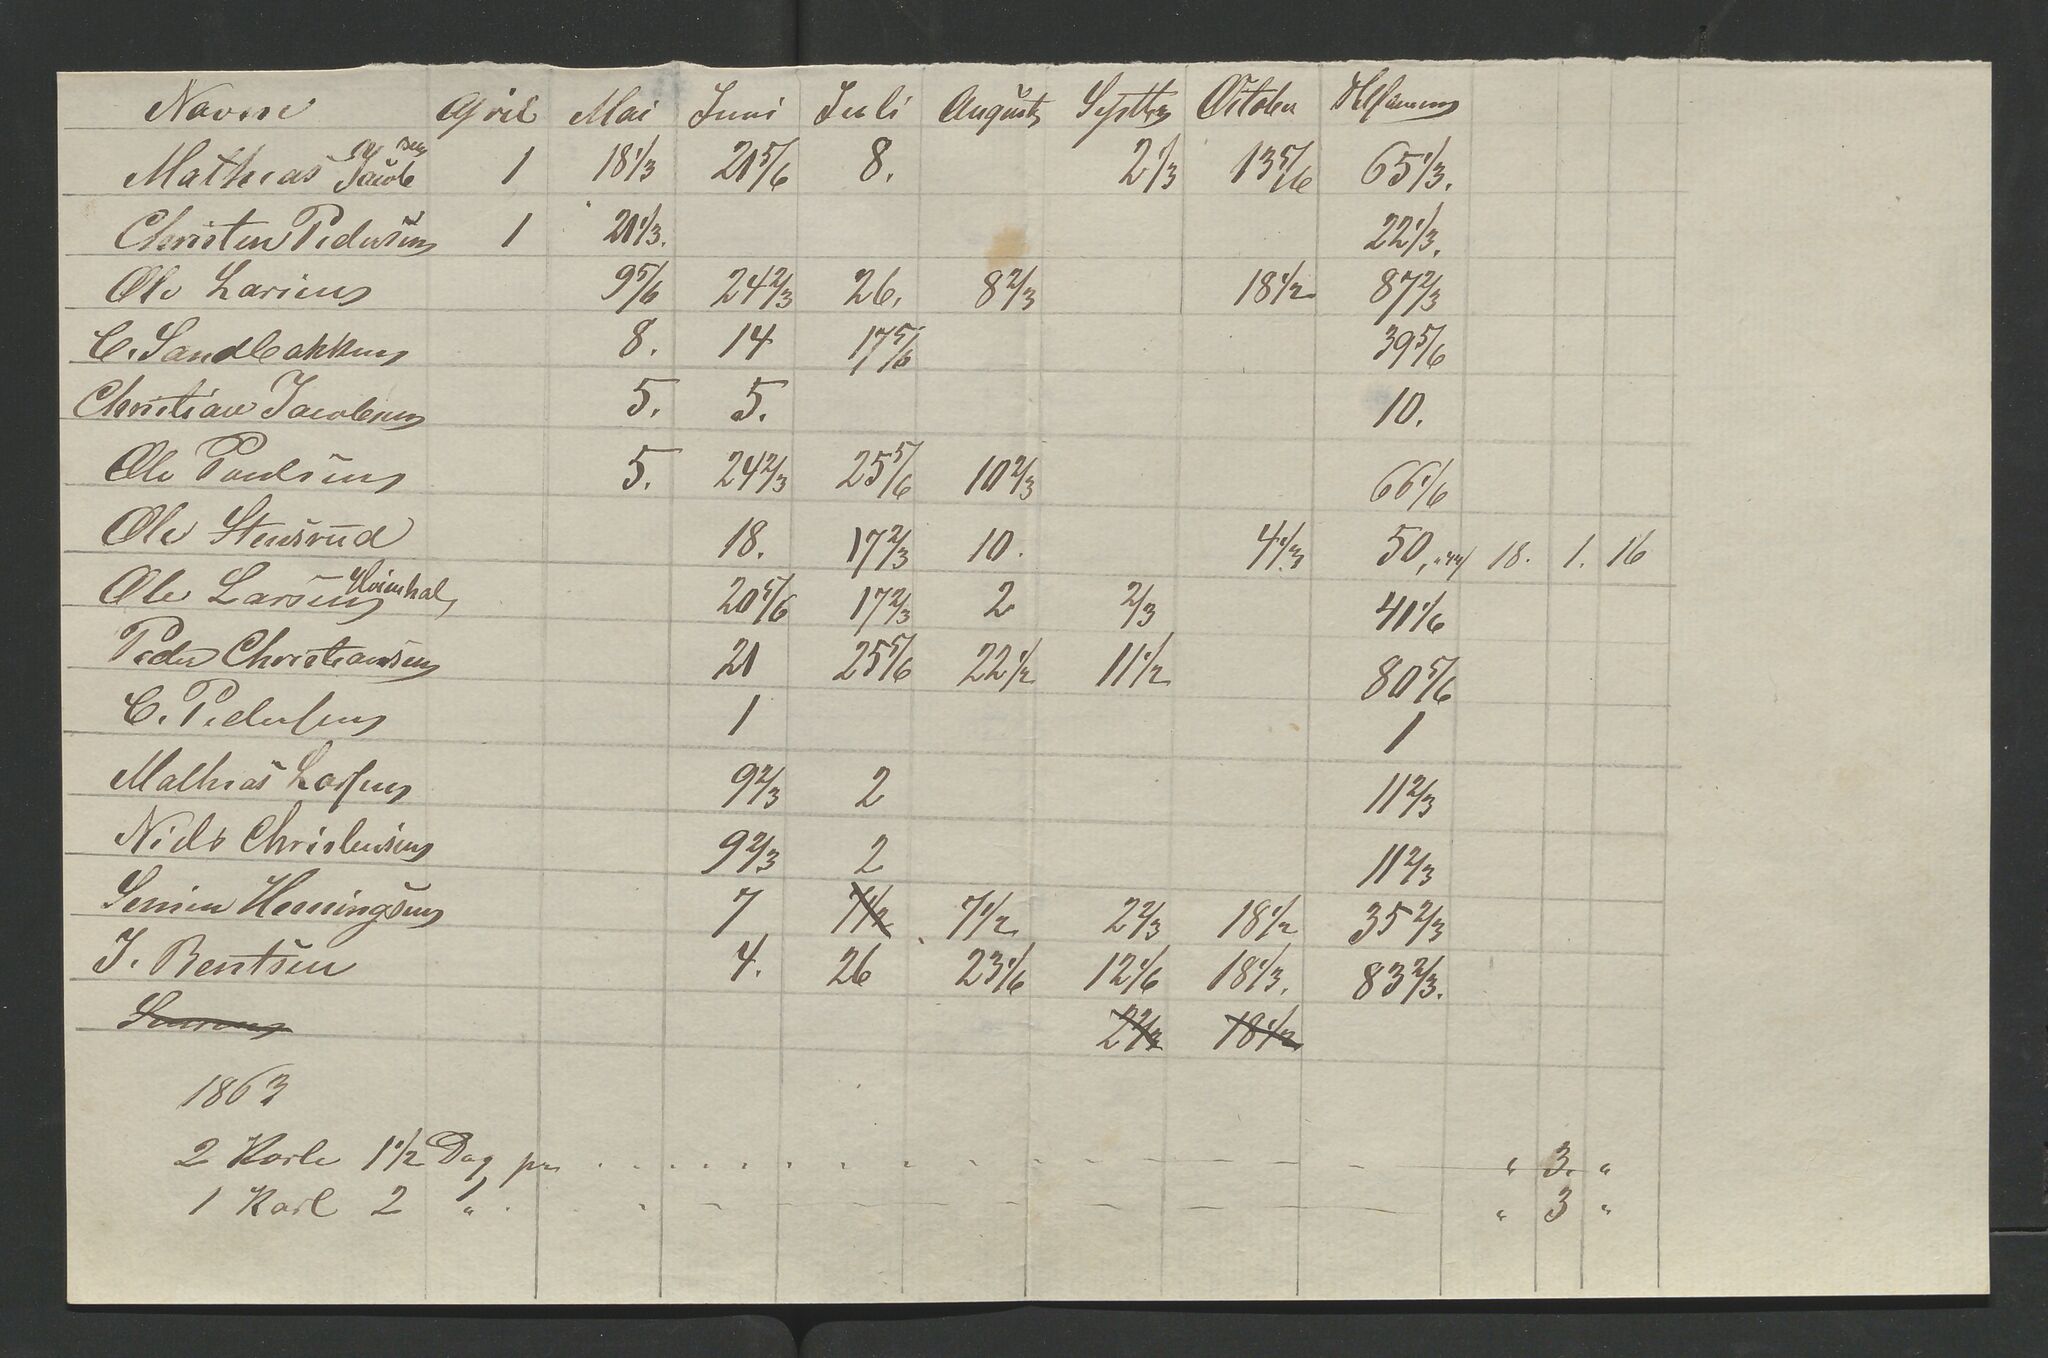 Navne April Mai Juni Juli August Septbr October
Mathias Jacobsen 1 18 1/3 21 5/6 8. 2 1/3 13 5/6 65 1/3.
Christen Pedersen 1 21 1/3. 22 1/3.
Ole Larsen 9 5/6 24 2/3 26. 8 2/3 18 1/2 87 2/3
C. Sandbakken 8. 14 17 5/6 39 5/6
Christian Jacobsen 5. 5. 10.
Ole Paulsen 5. 24 2/3 25 5/6 10 2/3 66 1/6
Ole Stensrud 18. 17 2/3 10. 4 1/3 50, 18. 1. 16
Ole Larsen 20 5/6 17 2/3 2 2/3 41 1/6
Peder Christiansen 21 25 5/6 22 1/2 11 1/2 80 5/6
C. Pedersen 1 1
Mathias Larsen 9 2/3 2 11 2/3
Niels Christensen 9 2/3 2 11 2/3
Simen Hemingsen 7 7 1/2 7 1/2 2 2/3 18 1/2 35 2/3
J. Bentsen 4. 26 23 1/6 12 1/6 18 1/3. 83 2/3.
2 2/3 18 1/2
1863
2 Karle 1 1/2 Dag pr " 3. "
1 Karl 2 " " 3 "